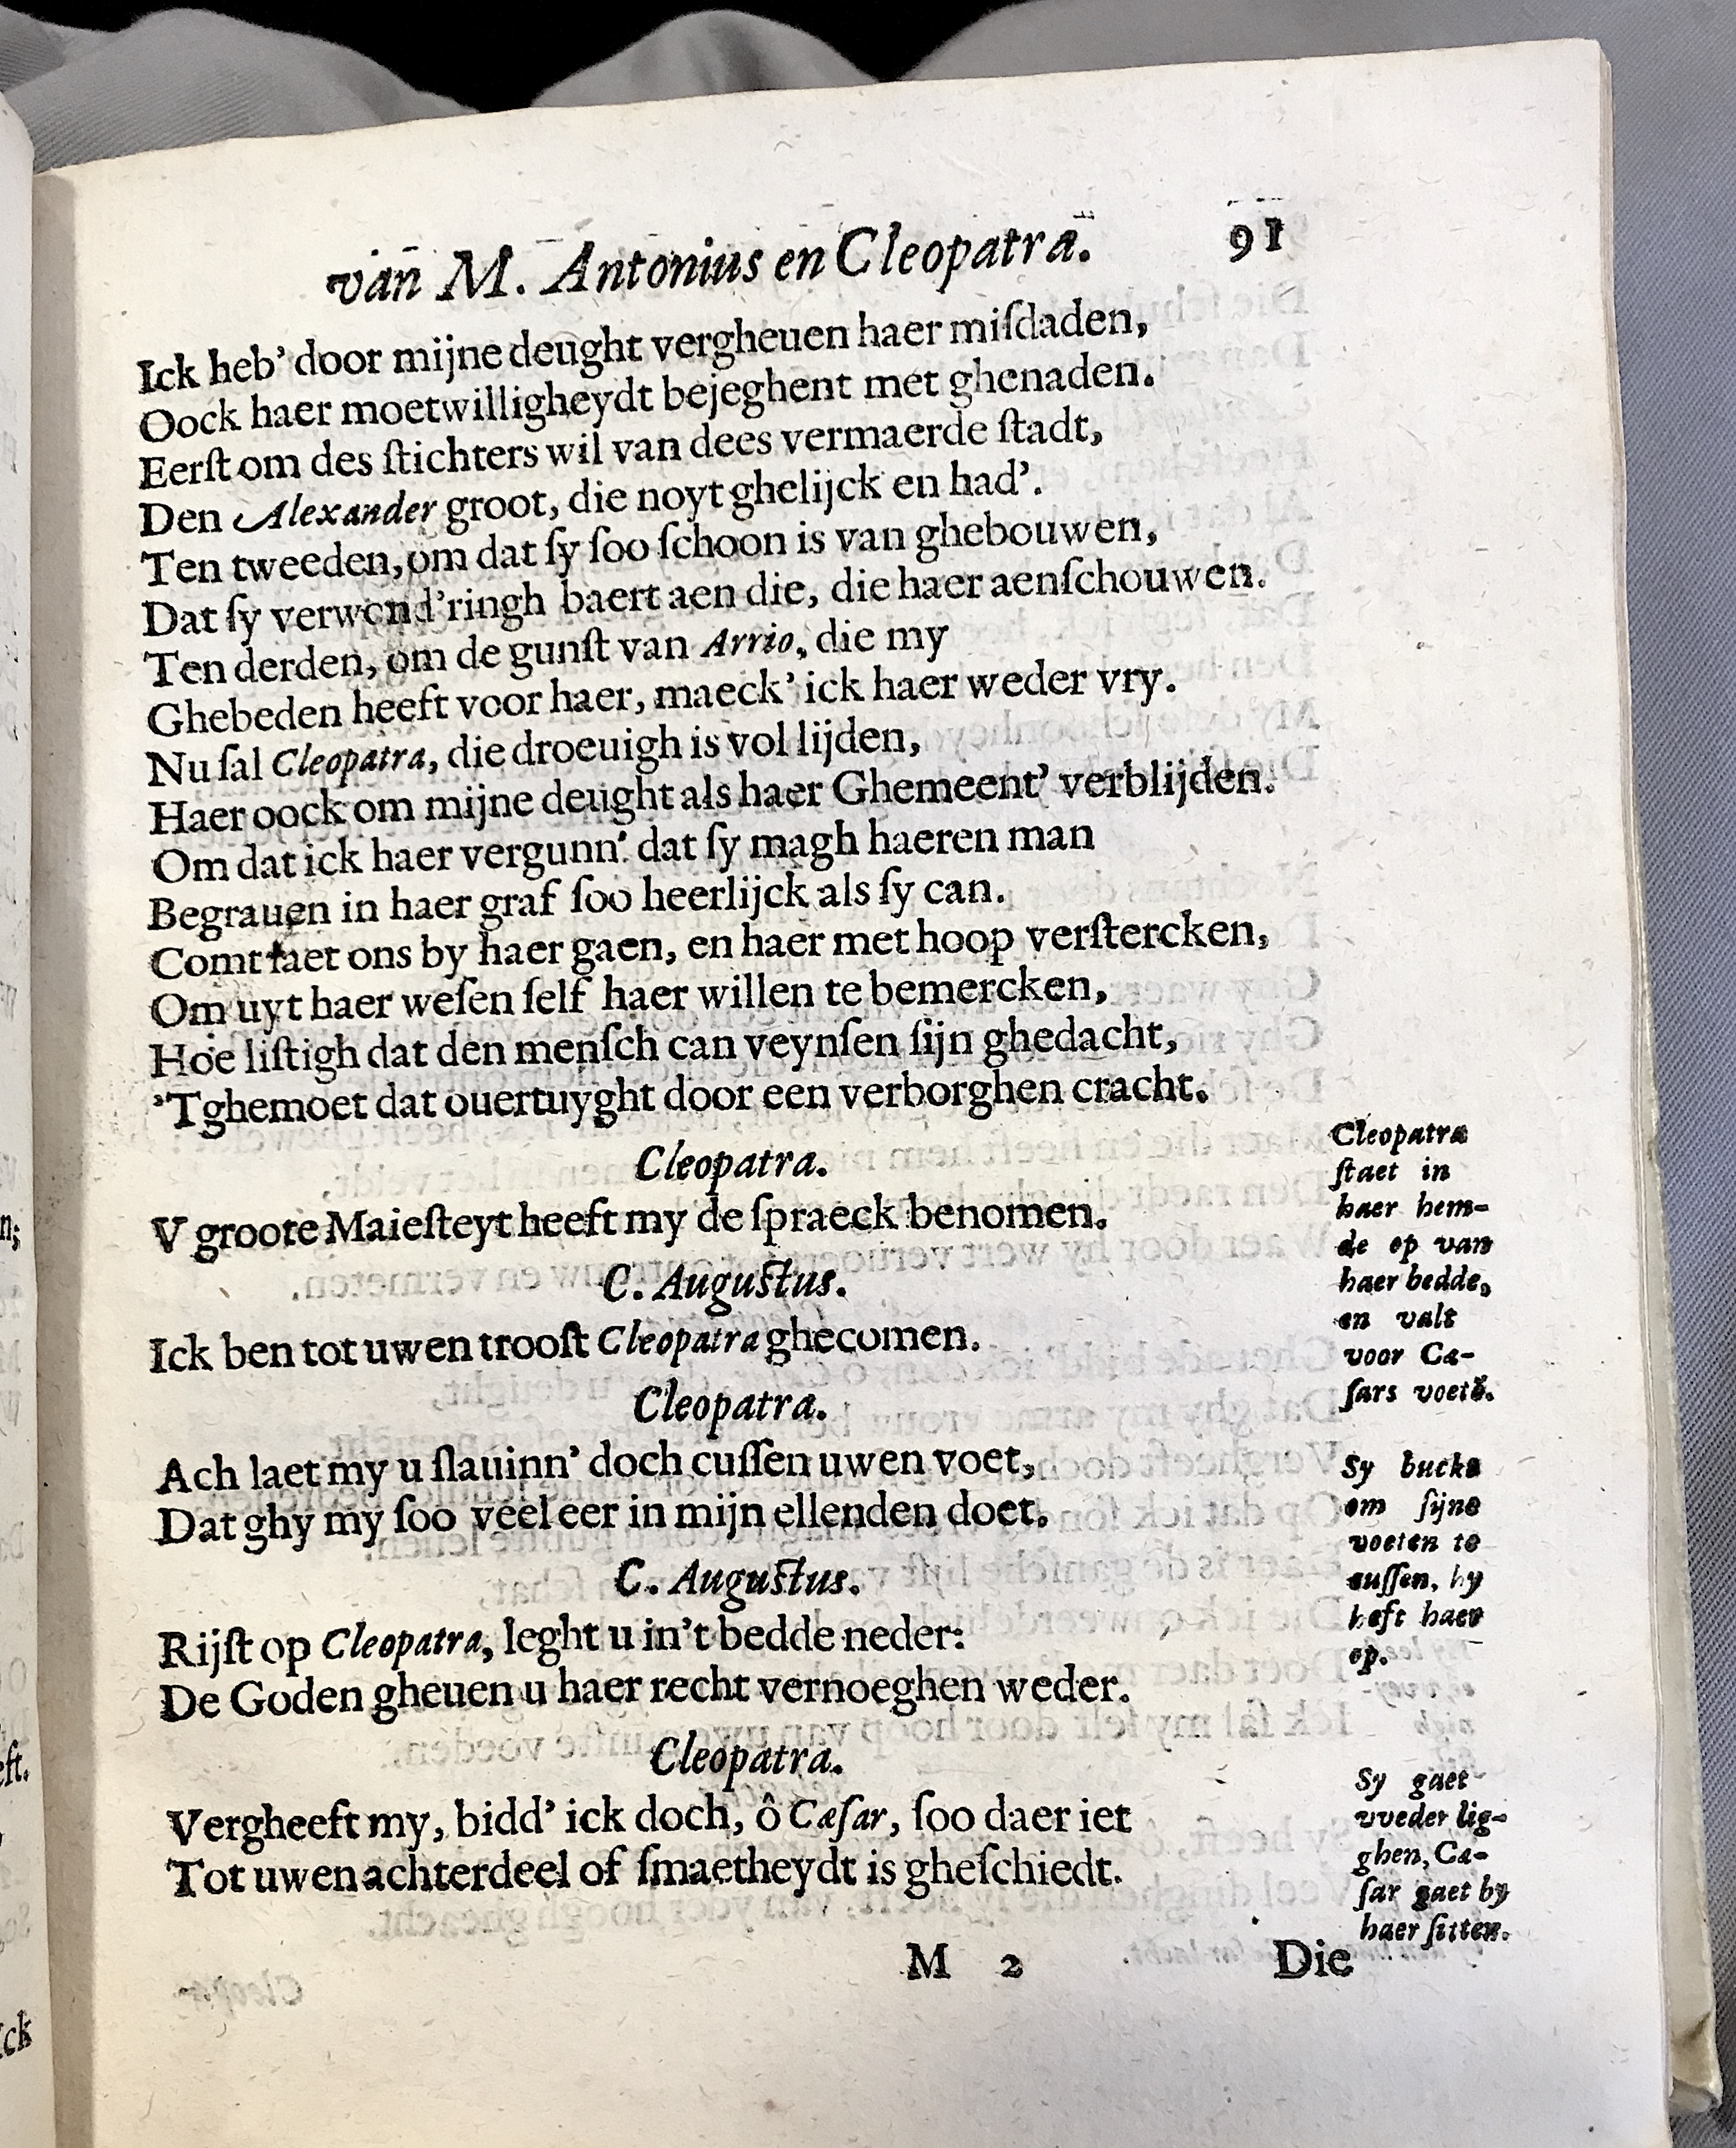 van M. Antonius en Cleopatra. 91
Ick heb' door mijne deught vergheuen haer miſdaden,
Oock haer moetwilligheydt bejeghent met ghenaden.
Eerſt om des ſtichters wil van dees vermaerde ſtadt,
Den Alexander groot, die noyt ghelijck en had'.
Ten tweeden, om dat ſy ſoo ſchoon is van ghebouwen,
Dat ſy verwond'ringh baert aen die, die haer aenſchouwen.
Ten derden, om de gunſt van Arrio, die my
Ghebeden heeft voor haer, maeck' ick haer weder vry.
Nu ſal Cleopatra, die droeuigh is vol lijden,
Haer oock om mijne deught als haer Ghemeent' verblijden.
Om dat ick haer vergunn' dat ſy magh haeren man
Begrauen in haer graf ſoo heerlijck als ſy can.
Comt laet ons by haer gaen, en haer met hoop verſtercken,
Om uyt haer weſen ſelf haer willen te bemercken,
Hoe liſtigh dat den menſch can veynſen ſijn ghedacht,
'Tghemoet dat ouertuyght door een verborghen cracht.
Cleopatra.
V groote Maieſteyt heeft my de ſpraeck benomen.
C. Auguſtus.
Ick ben tot uwen trooſt Cleopatra ghecomen.
Cleopatra.
Ach laet my u ſlauinn' doch cuſſen uwen voet,
Dat ghy my ſoo veel eer in mijn ellenden doet.
C. Auguſtus.
Rijſt op Cleopatra, leght u in't bedde neder:
De Goden gheuen u haer recht vernoeghen weder.
Cleopatra.
Vergheeft my, bidd' ick doch, ô Cæſar, ſoo daer iet
Tot uwen achterdeel of ſmaetheydt is gheſchiedt.
Cleopatra
ſtaet in
haer hem-
de op van
haer bedde,
en valt
voor Ca-
ſars voetē.
Sy buckt
om ſijne
voeten te
cuſſen, hy
heft haer
op.
Sy gaet
vveder lig-
ghen, Ca-
ſar gaet by
haer ſitten.
M 2 Die